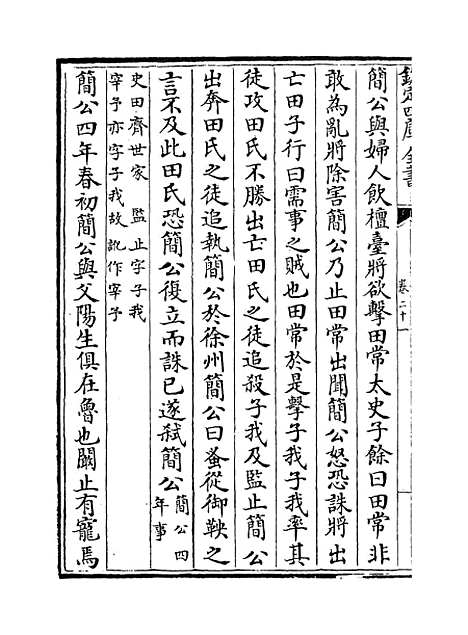 欽定四庫全書
卷二十一
簡公與婦人飲檀臺將欲擊田常太史子餘曰田常非
敢為亂將除害簡公乃止田常出聞簡公怒恐誅將出
亡田子行曰需事之賊也田常於是擊子我子我率其
徒攻田氏不勝出亡田氏之徒追殺子我及監止簡公
出奔田氏之徒追執簡公於徐州簡公曰蚤從御鞅之
言不及此田氏恐簡公復立而誅已遂弑簡公簡公四
年事
史田齊世家 監止字子我
宰予亦字子我故訛作宰予
簡公四年春初簡公與父陽生俱在魯也闞止有寵焉